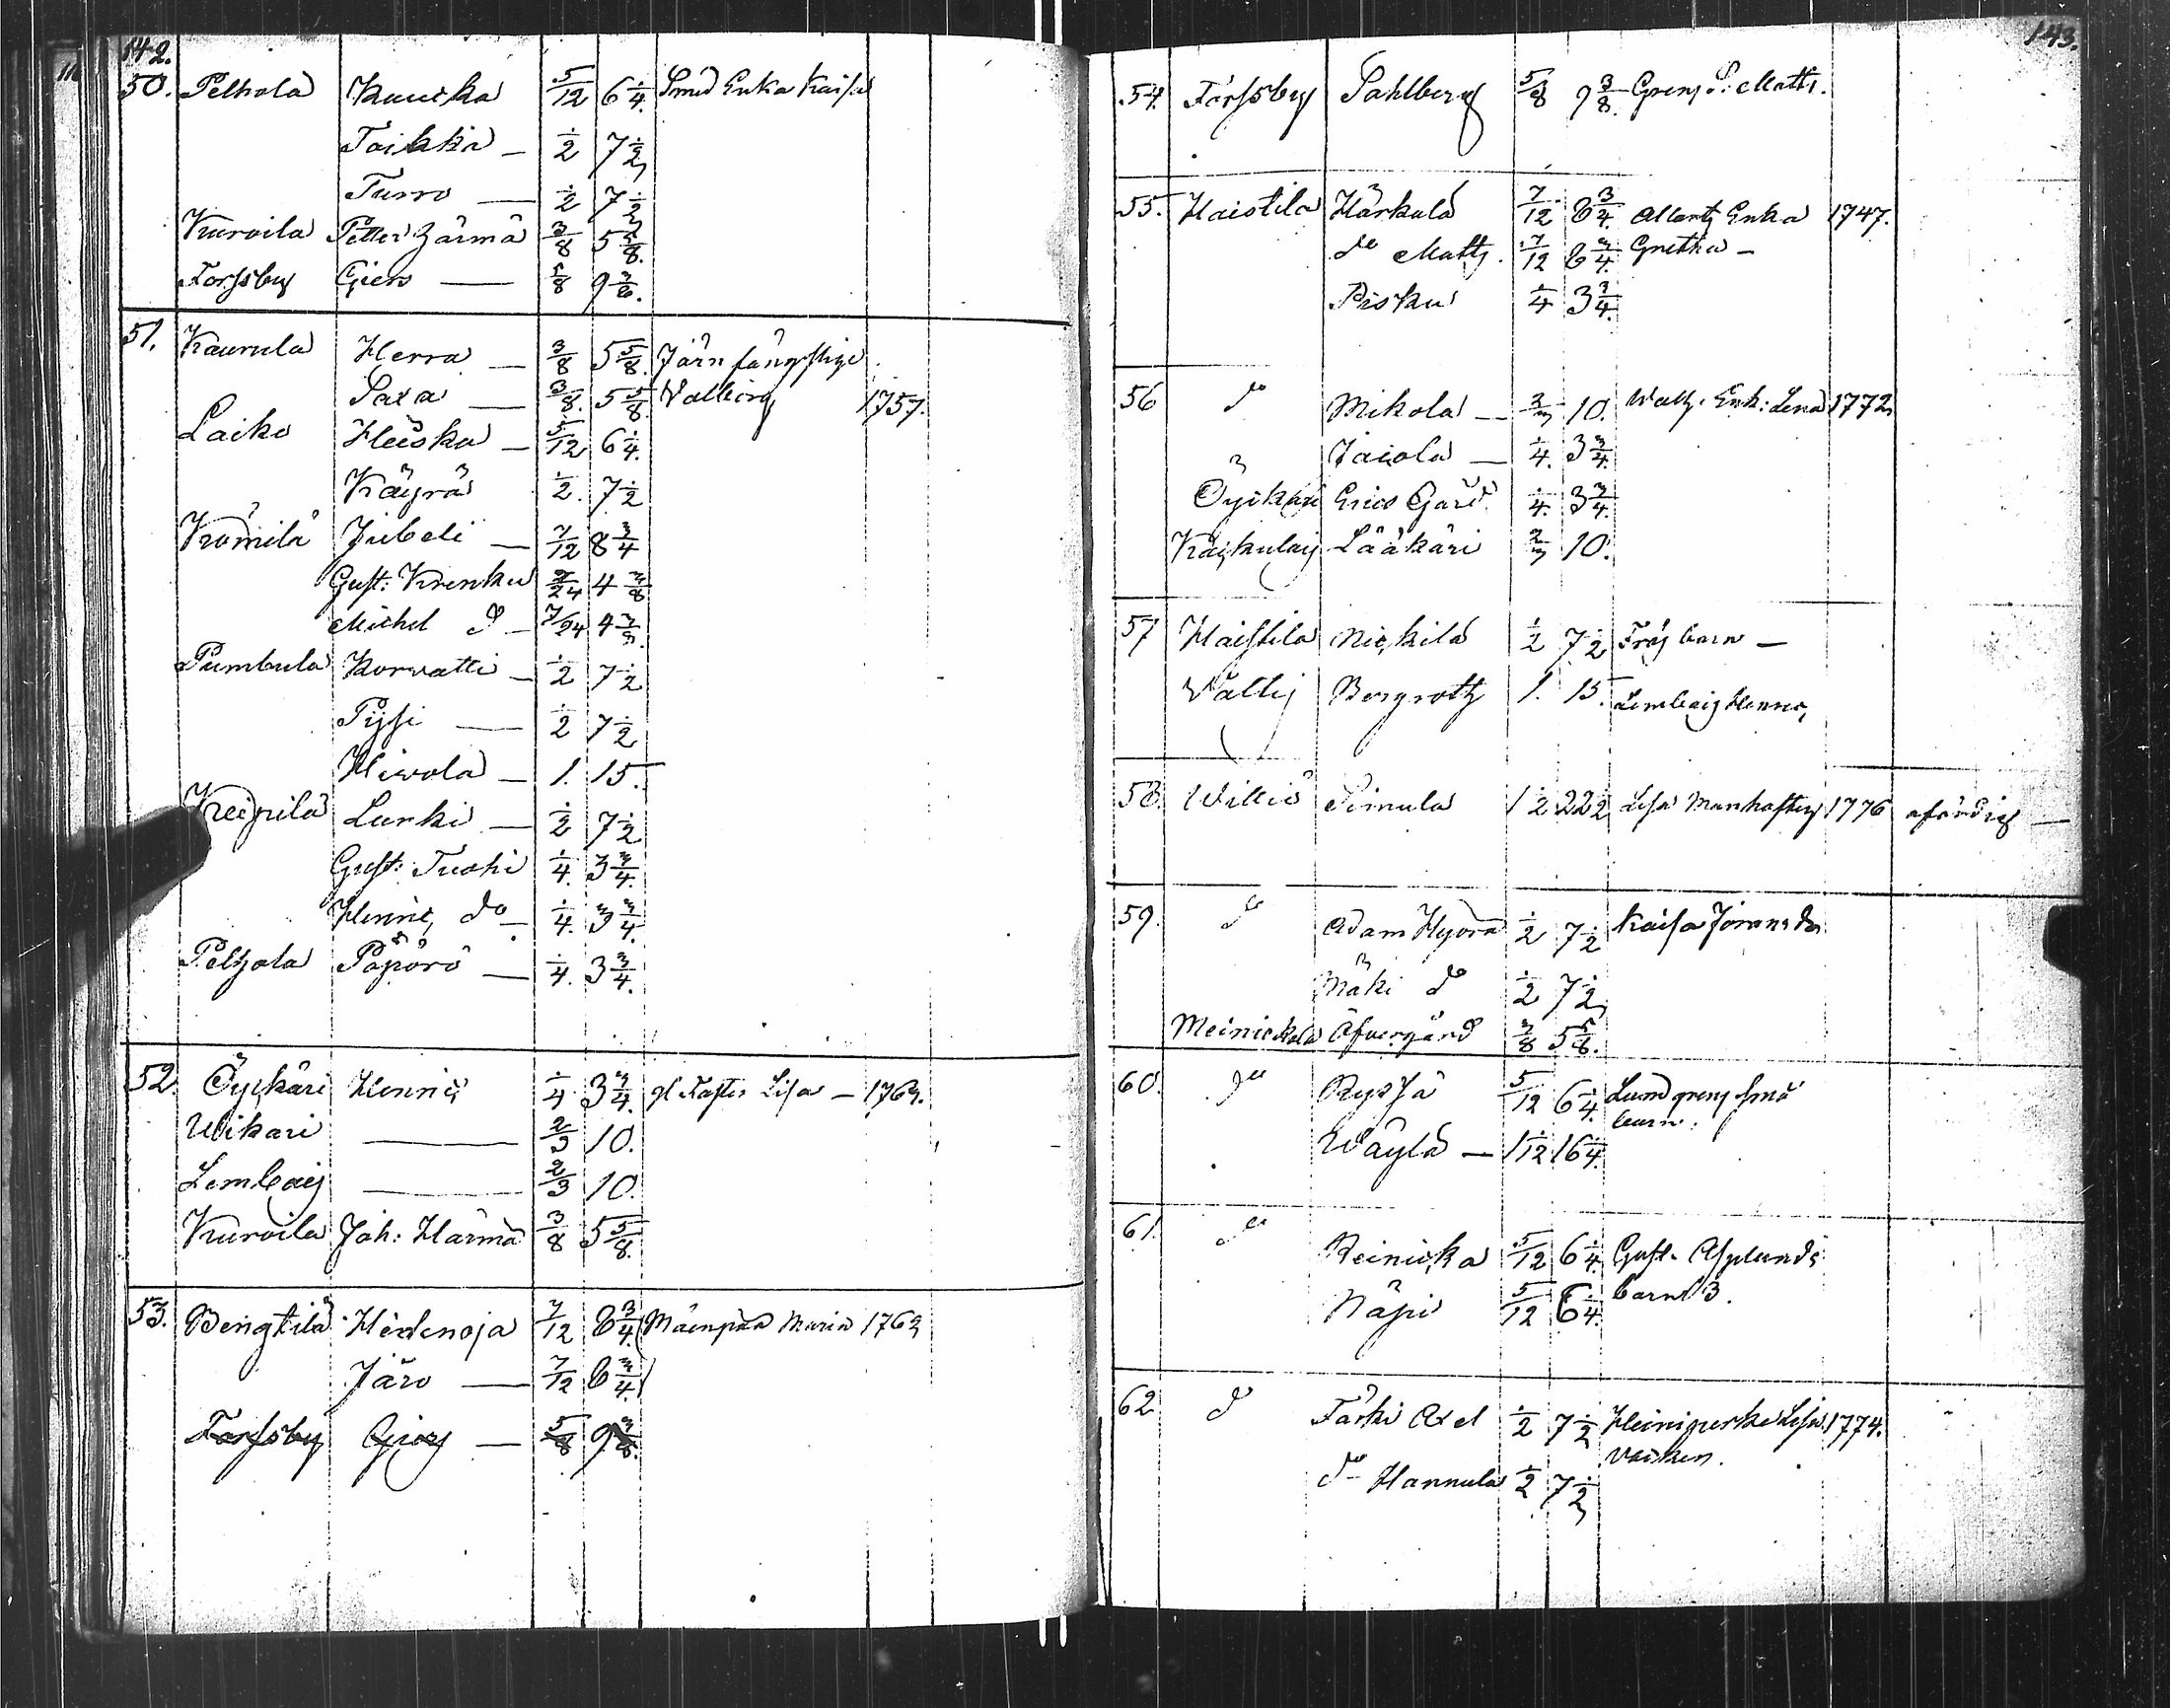 142.
50. Peltola Kaucka 5/12 6 1/4. Smed Enka Kaisa
Toikka — 1/2 7 1/2
Turro — 1/2 7 1/2
Kurvila Petter Härmä 3/8 5 5/8.
Forssby Giers — 5/8 9 3/8.
51. Kaurula Herra — 3/8 5 5/8. Järn
Saxa — 3/8. 5 5/8. Valborg 1757.
Laiko Heiska — 5/12 6 1/4.
Käyrä 1/2. 7 1/2
Krömilä Jubeli — 7/12 8 3/4
Gust: Krenku 7/24 4 3/8
Michel d — 7/24 4 3/8.
Pumbula Korvatti — 1/2 7 1/2
Pyssi — 1/2 7 1/2
Hirvola — 1. 15.
Kreipilä Lurki — 1/2 7 1/2
Gust: Tuohi 1/4. 3 3/4.
Henric do — 1/4. 3 3/4.
Peltola Pöpörö — 1/4. 3 3/4.
52. Öyckäri Henric 1/4 3 3/4. Lisa — 1763.
Uikari — 2/3 10.
Lembois — 2/3 10.
Kurvila Joh: Härmä 3/8 5 5/8.
53. Bengtilä Hedenoja 7/12 8 3/4. Mäenpää Maria 1763
Järo — 7/12 8 3/4
Forssby Giers — 5/8 9 3/8.
143.
54. Forssby Sahlberg 5/8 9 3/8. Gren S: Matts.
55. Haistila Härkälä 7/12 8 3/4. Matts Enka 1747.
do Matts. 7/12 8 3/4. Gretha —
Pisku 1/4 3 3/4.
56 do Mikola — 2/3 10. Matts. Enk: Lena 1772
Jaiola — 1/4. 3 3/4.
Öyckäri Erics Gård 1/4. 3 3/4.
Lääkäri 2/3 10.
57 Haistila Nickilä 1/2 7 1/2 barn —
Bergroth 1. 15.
58. Willio Simula 1 1/2 22 1/2 Lisa Manhafting 1776 ofärdig —
59. do Adam Hyörä 1/2 7 1/2 Kaisa Jörans do.
Mäki do 1/2 7 1/2
Meinickala Öfvergård 3/8 5 5/8.
60. do 5/12 6 1/4. Lundgrens små
barn.
Wäylä — 1 1/12 16 1/4.
61. do Reinicka 5/12 6 1/4. Gust. Asplunds
Näpi 5/12 6 1/4. barn 3.
62 do Färki Axel 1/2 7 1/2 Lisa 1774.
do Hannula 1/2 7 1/2